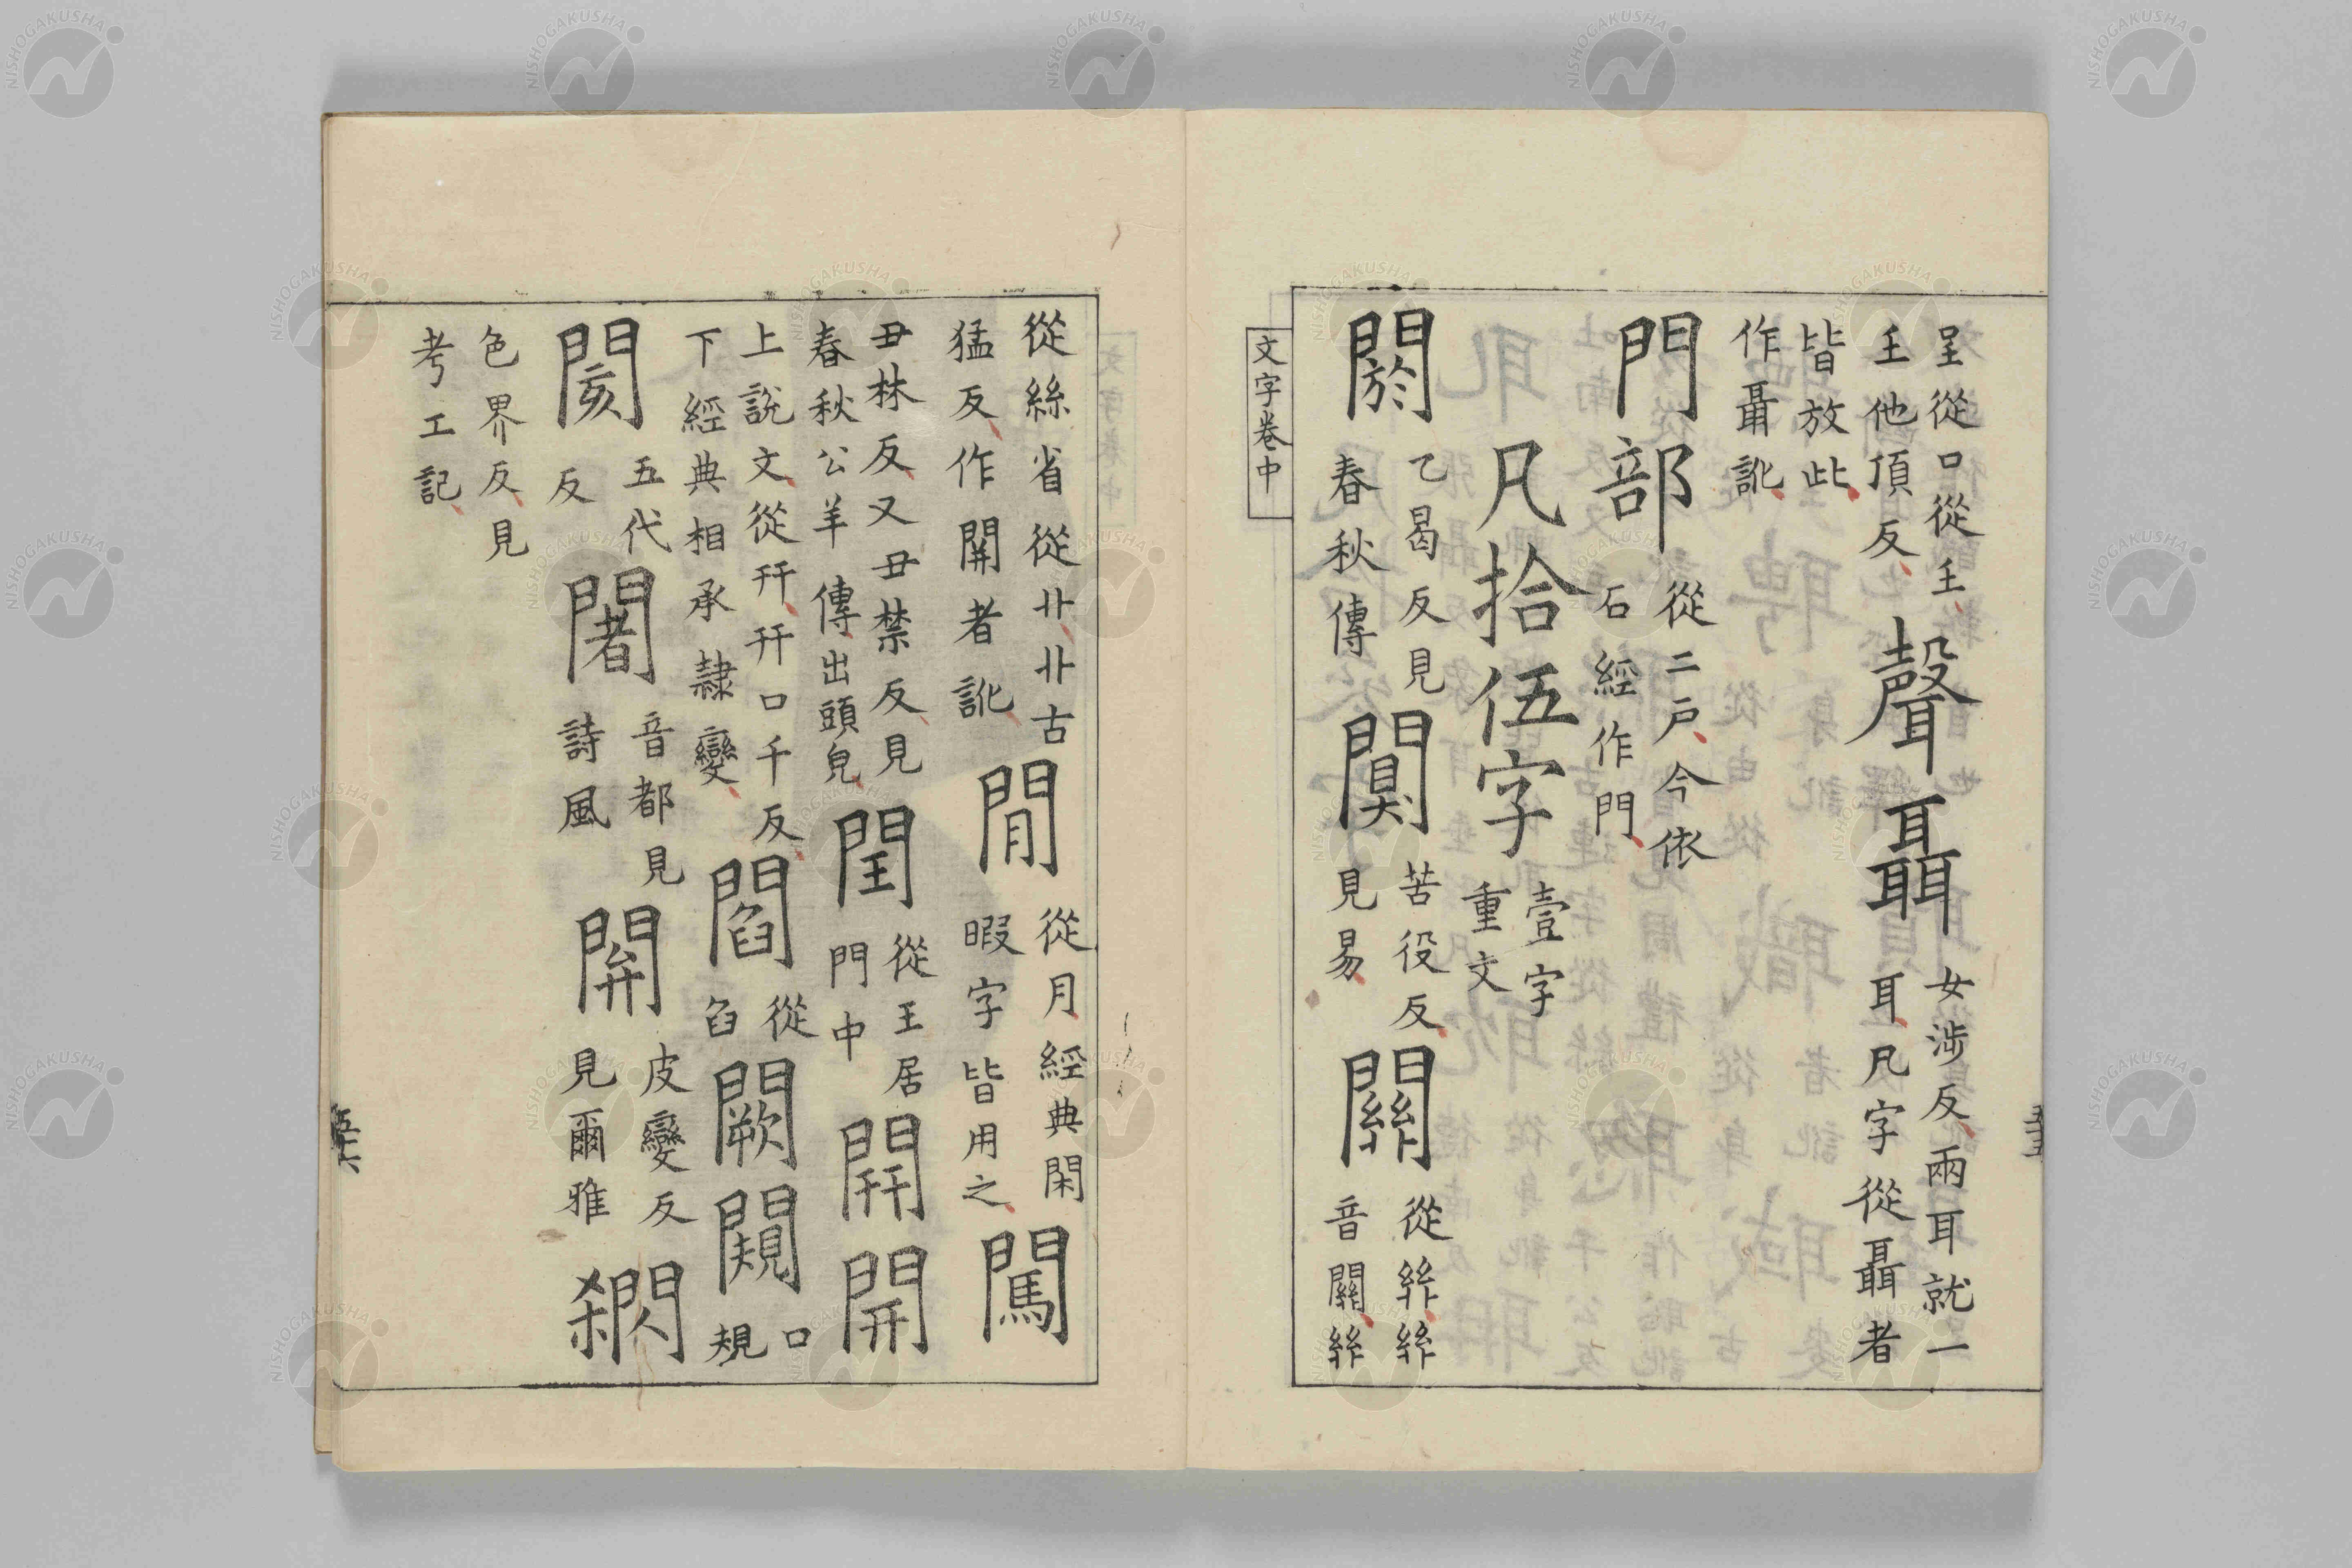 呈從口從𡈼
𡈼他頂反
聲
聶
女涉反兩耳就一
耳凡字從聶者
皆放此
作聶訛
門部
從二戶今依
石經作門
凡拾伍字
壹字
重文
閼
乙曷反見
春秋傳
闃
苦役反
見易
關
從𢇇𢇇
音關𢇇
文字卷中
五十五
從絲省從丱丱古
猛反作開者訛
閒
從月經典閑
暇字皆用之
闖
丑林反又丑禁反見
春秋公羊傳出頭皃
閏
從王居
門中
𨳡
開
上說文從幵幵口千反
下經典相承隸變
閻
從
臽
闕
闚
口
規
閡
五代
反
闍
音都見
詩風
開
皮變反
見爾雅
閷
色界反見
考工記
五十六
NISHOGAKUSHA